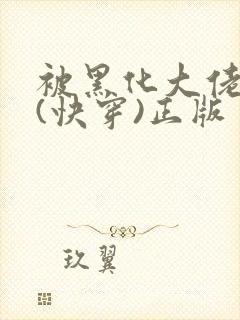 被黑化大佬
(快穿)正版
玖翼